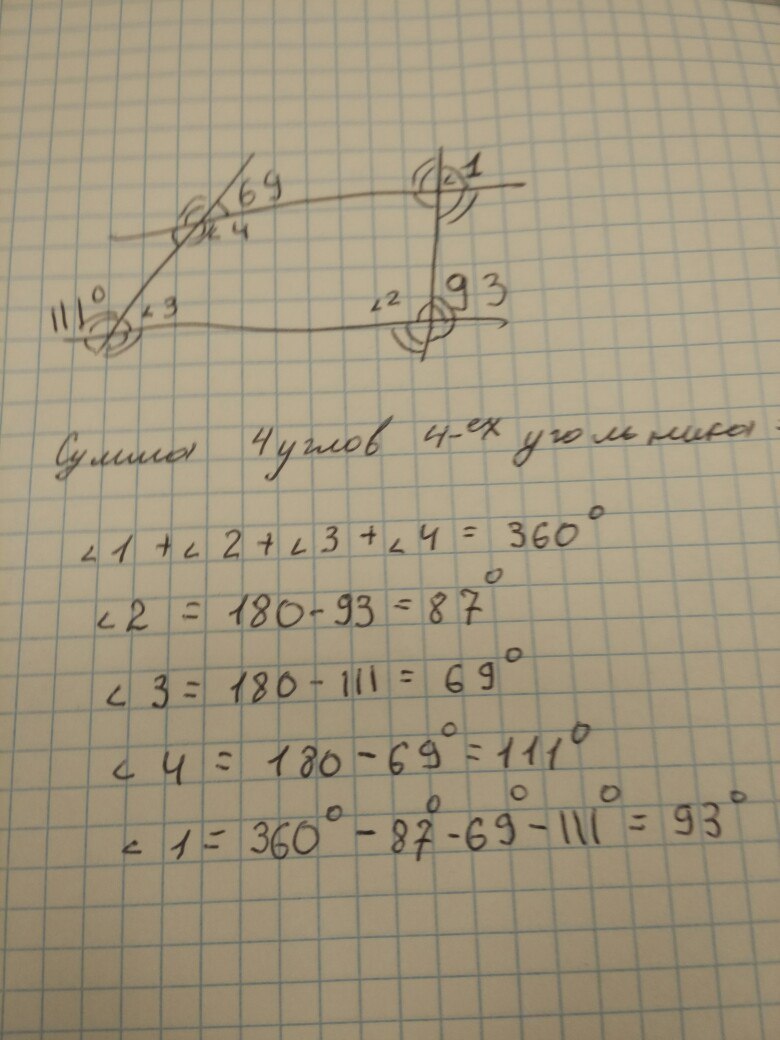 69
∠1
∠4
111°
∠3
∠2
93
Сумма 4 углов 4-ех угольника =
∠1 + ∠2 + ∠3 + ∠4 = 360°
∠2 = 180 - 93 = 87°
∠3 = 180 - 111 = 69°
∠4 = 180 - 69° = 111°
∠1 = 360° - 87° - 69° - 111° = 93°